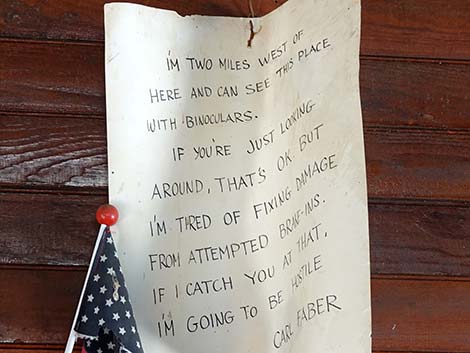 I'M TWO MILES WEST OF
HERE AND CAN SEE THIS PLACE
WITH BINOCULARS.
IF YOU'RE JUST LOOKING
AROUND, THAT'S OK. BUT
I'M TIRED OF FIXING DAMAGE
FROM ATTEMPTED BRAKE-INS.
IF I CATCH YOU AT THAT,
I'M GOING TO BE HOSTILE
CARL FABER